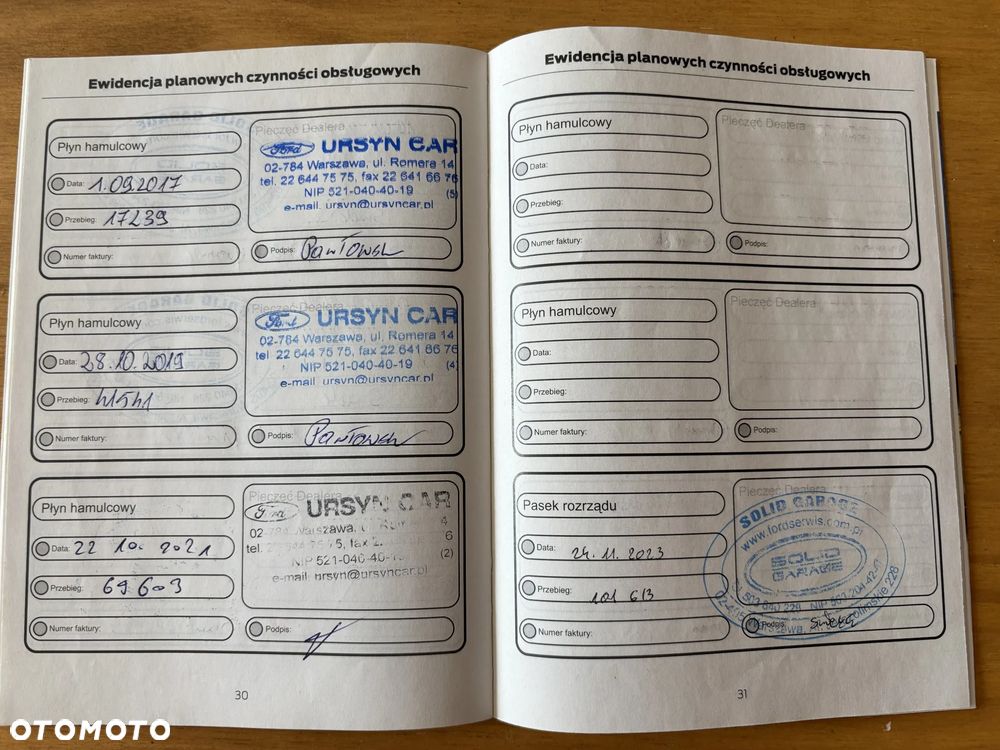 Ewidencja planowych czynności obsługowych
Płyn hamulcowy
Pieczęć Dealera
Ford URSYN CAR
02-784 Warszawa, ul. Romera 14
tel. 22 644 75 75, fax 22 641 66 76
NIP 521-040-40-19 (5)
e-mail. ursyn@ursyncar.pl
Data: 1.09.2017
Przebieg: 17239
Numer faktury:
Podpis:
Płyn hamulcowy
Pieczęć Dealera
Ford URSYN CAR
02-784 Warszawa, ul. Romera 14
tel. 22 644 75 75, fax 22 641 66 76
NIP 521-040-40-19 (4)
e-mail: ursyn@ursyncar.pl
Data: 28.10.2019
Przebieg: 41541
Numer faktury:
Podpis:
Płyn hamulcowy
Pieczęć Dealera
Ford URSYN CAR
NIP 521-040-40- (2)
e-mail: ursyn@ursyncar.pl
Data: 22 10. 2021
Przebieg: 69603
Numer faktury:
Podpis:
30
Ewidencja planowych czynności obsługowych
Płyn hamulcowy
Pieczęć Dealera
Data:
Przebieg:
Numer faktury:
Podpis:
Płyn hamulcowy
Pieczęć Dealera
Data:
Przebieg:
Numer faktury:
Podpis:
Pasek rozrządu
Pieczęć Dealera
SOLID GARAGE
www.fordserwis.com.pl
SOLID
GARAGE
Data: 24.11.2023
Przebieg: 101 613
Numer faktury:
Podpis:
31
OTOMOTO